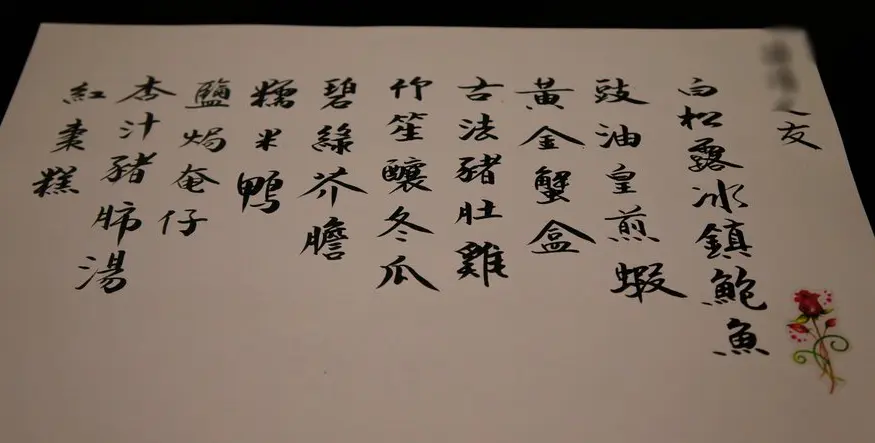 之友
白松露冰鎮鮑魚
豉油皇煎蝦
黃金蟹盒
古法豬肚雞
竹笙釀冬瓜
碧綠芥膽
糯米鴨
鹽焗奄仔
杏汁豬肺湯
紅棗糕